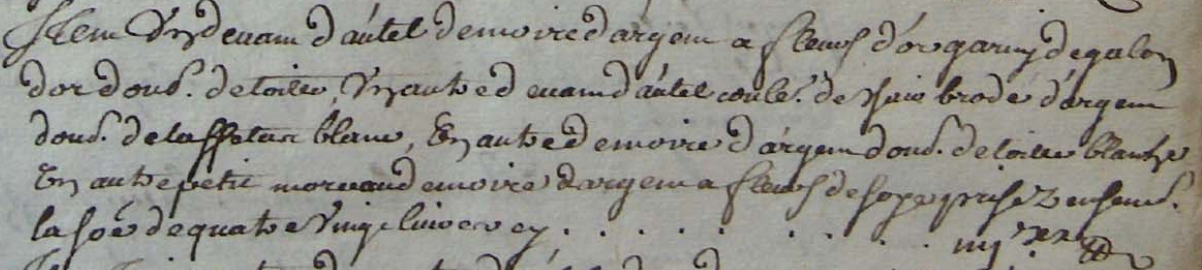 Item Un devant d'autel de moire d'argent a fleurs d'or garny de galon
d'or doub. de toille, Un autre devant d'autel coule. de chair brodé d'argent
doub. de taffetas blanc, Un autre de moire d'argent doub. de toille blanche
Un autre petit morceau de moire d'argent a fleurs de soye prisez ensemb.
la soe de quatre Vingt livres cy . . . . . . . . . . iiij xx ##